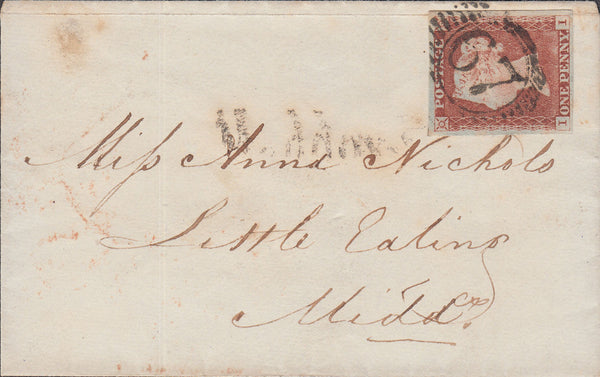 POSTAGE
ONE PENNY
Miſs Anna Nichols
Little Ealing
Middx